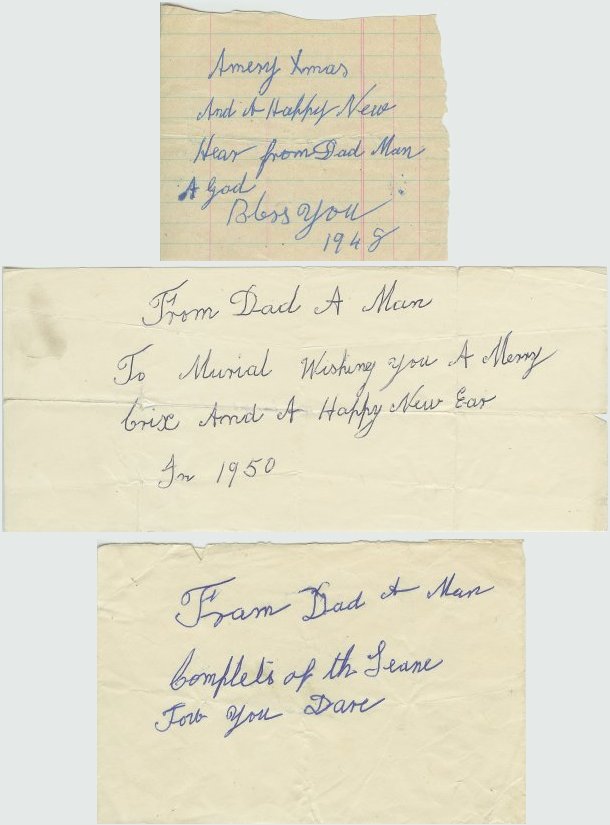 Amery Xmas
And A Happy New
Hear from Dad Man
A God
Bless You
1948
From Dad A Man
To Murial Wishing you A Merry
Crix And A Happy New Ear
In 1950
Fram Dad A Man
Complets of th Seane
Fow You Dave